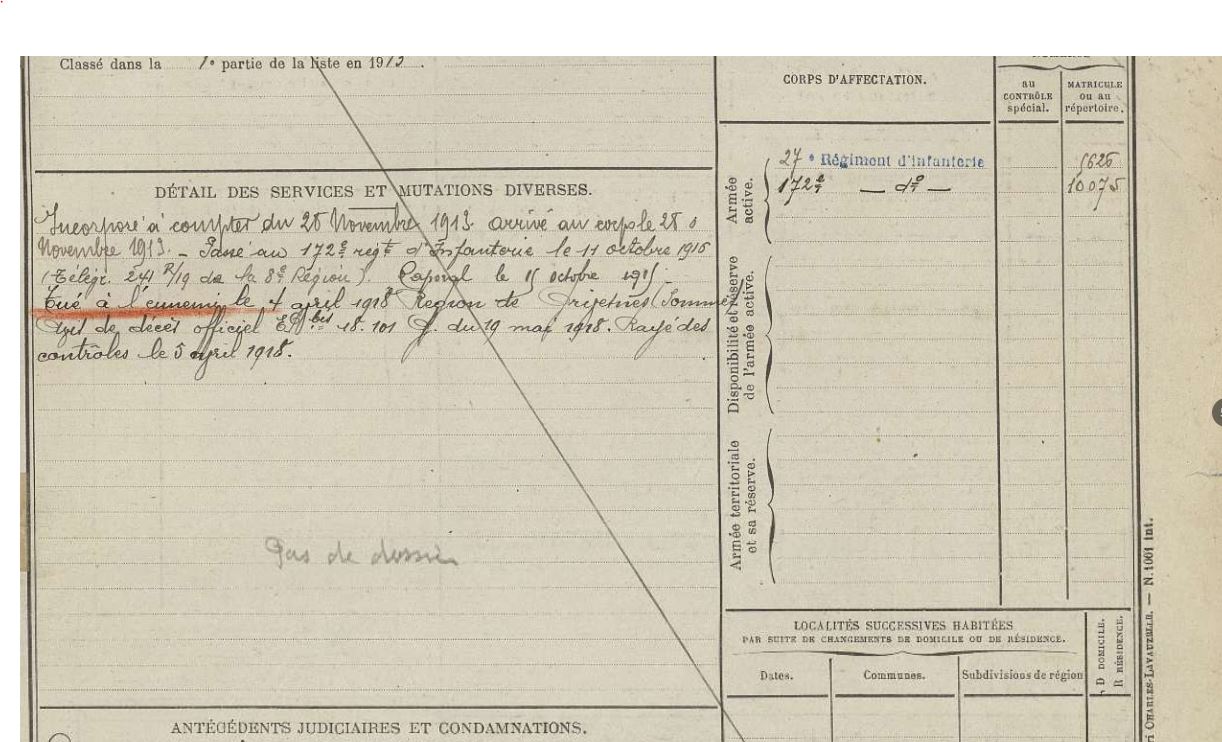 Classé dans la 1e partie de la liste en 1913.
CORPS D'AFFECTATION.
au CONTRÔLE spécial.
MATRICULE ou au répertoire.
Armée active.
27e Régiment d'infanterie 5626
172e — do — 10075
DÉTAIL DES SERVICES ET MUTATIONS DIVERSES.
Incorporé à compter du 28 Novembre 1913. arrivé au corps le 28
Novembre 1913. - Passé au 172e regt d'Infanterie le 11 octobre 1915
(Télégr. 241 R/19 de la 8e Région). Caporal le octobre
Tué à l'ennemi le 4 april 1918 Région de (Somme)
Avis de décès officiel bis 18.101 du 19 mai 1918. Rayé des
contrôles le 5 april 1918.
Disponibilité et réserve de l'armée active.
Armée territoriale et sa réserve.
Pas de dossier
LOCALITÉS SUCCESSIVES HABITÉES
PAR SUITE DE CHANGEMENTS DE DOMICILE OU DE RÉSIDENCE.
Dates.
Communes.
Subdivisions de région
D DOMICILE.
R RÉSIDENCE.
CHARLES-LAVAUZELLE. — N. 1001 int.
ANTÉCÉDENTS JUDICIAIRES ET CONDAMNATIONS.